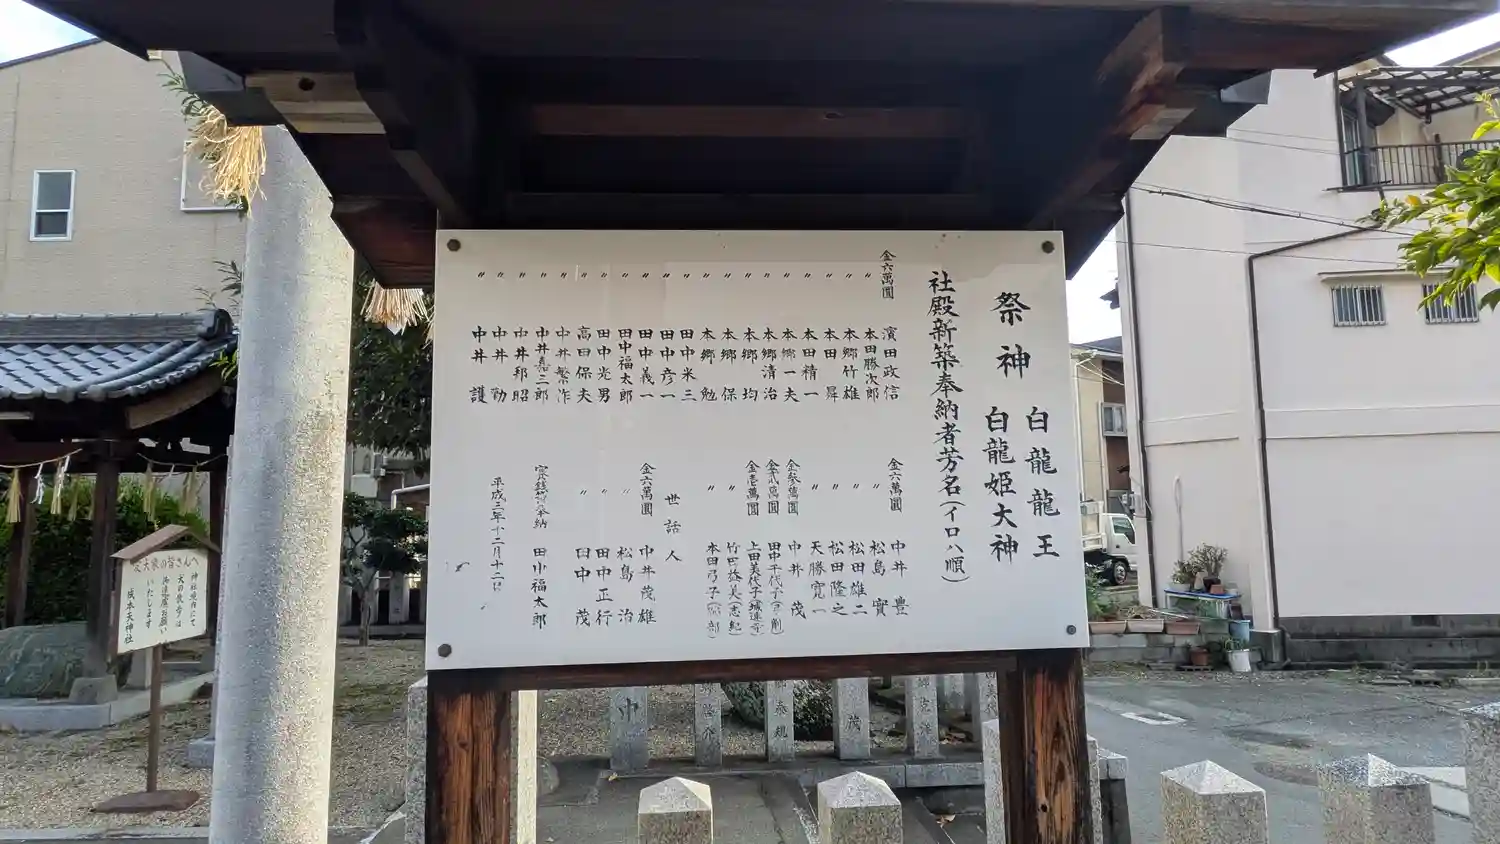 祭神
白龍龍王
白龍姫大神
社殿新築奉納者芳名(イロハ順)
金六萬圓 濱田政信
〃 本田勝次郎
〃 本郷竹雄
〃 本田 舜
〃 本田精一
〃 本郷一夫
〃 本郷清治
〃 本郷 均
〃 本郷 保
〃 本郷 勉
〃 田中米三
〃 田中彦一
〃 田中義一
〃 田中福太郎
〃 田中光男
〃 高田保夫
〃 中井繁作
〃 中井嘉三郎
〃 中井邦昭
〃 中井 勧
〃 中井 護
金六萬圓 中井 豊
〃 松島 實
〃 松田雄二
〃 松田隆之
〃 天勝寛一
金参萬圓 中井 茂
金弐萬圓 田中千代子
金壱萬圓 上田美代子
〃 竹田益美(志紀)
〃 本田弓子
世話人
金六萬圓 中井茂雄
〃 松島 治
〃 田中正行
〃 田中 茂
奉納 田中福太郎
平成三年十二月十二日
愛犬家の皆さんへ
神社境内にて
犬の散歩は
御遠慮お願い
いたします